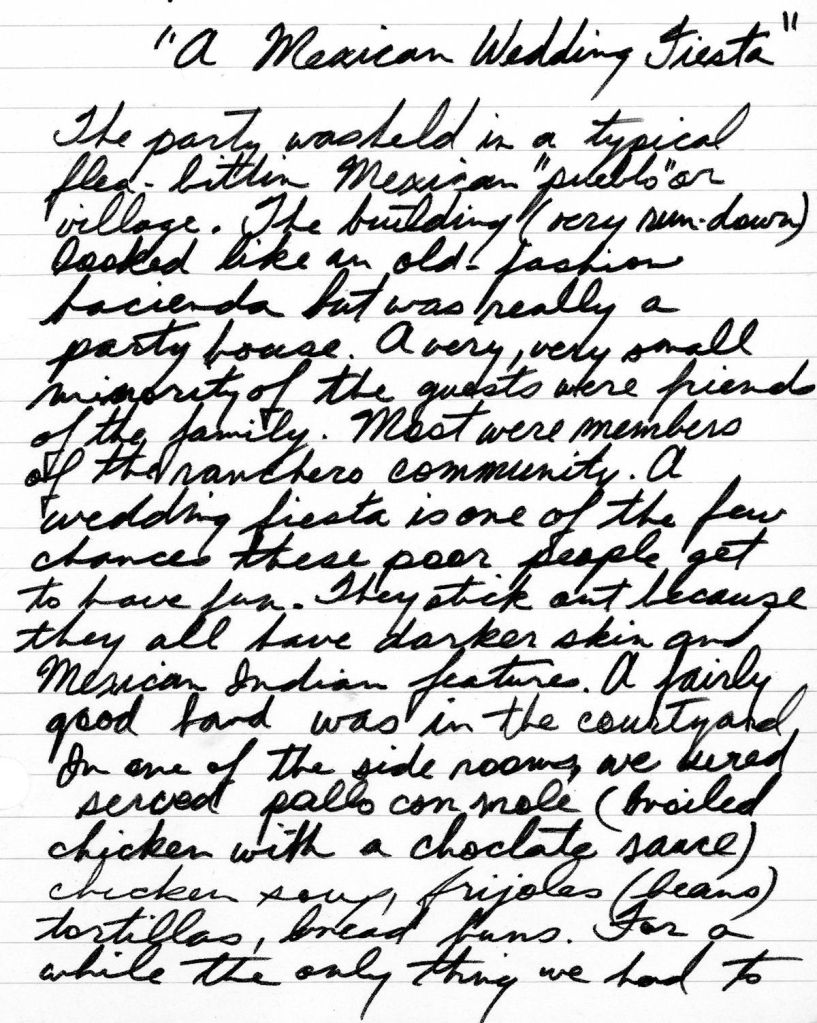 "A Mexican Wedding Fiesta"
The party was held in a typical
flea-bittin Mexican "pueblo" or
village. The building (very run-down)
looked like an old-fashion
hacienda but was really a
party house. A very, very small
minority of the guests were friends
of the family. Most were members
of the ranchero community. A
wedding fiesta is one of the few
chances these poor people get
to have fun. They stick out because
they all have darker skin and
Mexican Indian features. A fairly
good band was in the courtyard,
In one of the side rooms, we wered
served pallo con mole (broiled
chicken with a choclate sauce)
chicken soup, frijoles (beans)
tortillas, bread buns. For a
while the only thing we had to